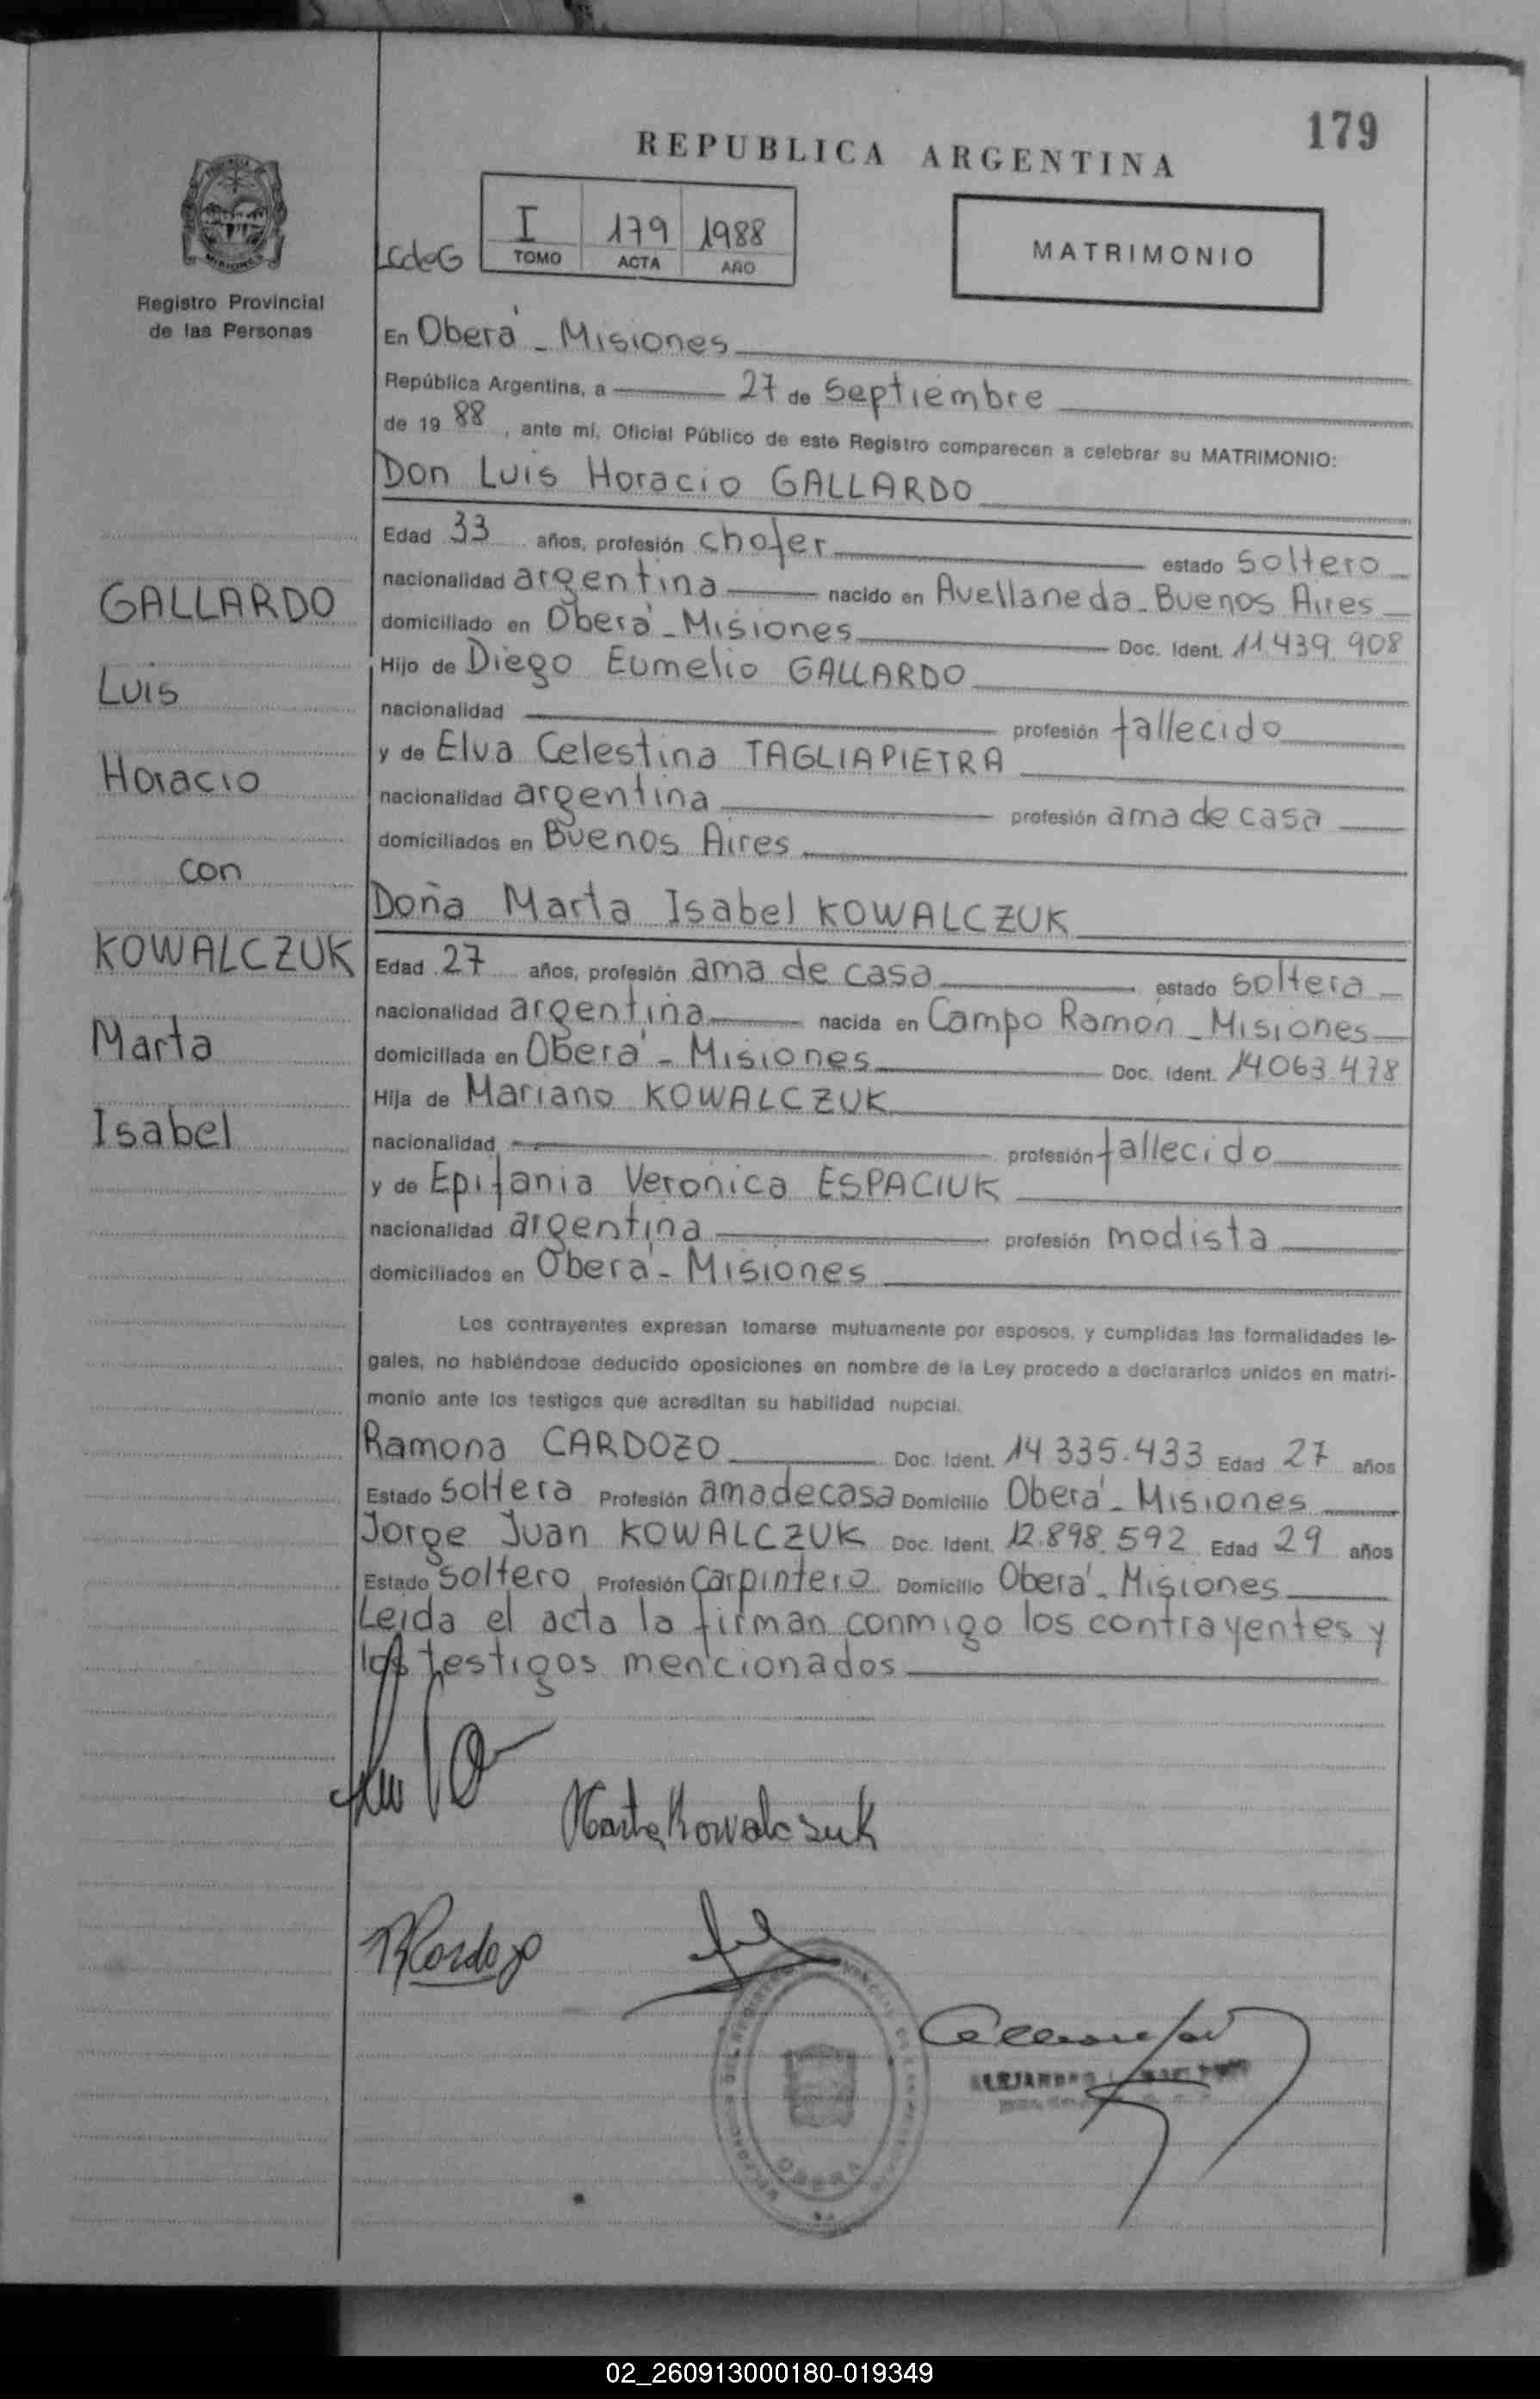 179
REPUBLICA ARGENTINA
I 179 1988
TOMO ACTA AÑO
LCdeG
MATRIMONIO
Registro Provincial
de las Personas
MISIONES
En Oberá - Misiones
República Argentina, a 27 de Septiembre
de 19 88, ante mí, Oficial Público de este Registro comparecen a celebrar su MATRIMONIO:
Don Luis Horacio GALLARDO
Edad 33 años, profesión chofer estado soltero
nacionalidad argentina nacido en Avellaneda - Buenos Aires
domiciliado en Oberá - Misiones Doc. Ident. 11.439.908
Hijo de Diego Eumelio GALLARDO
nacionalidad profesión fallecido
y de Elva Celestina TAGLIAPIETRA
nacionalidad argentina profesión ama de casa
domiciliados en Buenos Aires
Doña Marta Isabel KOWALCZUK
Edad 27 años, profesión ama de casa estado soltera
nacionalidad argentina nacida en Campo Ramón - Misiones
domiciliada en Oberá - Misiones Doc. Ident. 14.063.478
Hija de Mariano KOWALCZUK
nacionalidad profesión fallecido
y de Epifania Veronica ESPACIUK
nacionalidad argentina profesión modista
domiciliados en Oberá - Misiones
GALLARDO
Luis
Horacio
con
KOWALCZUK
Marta
Isabel
Los contrayentes expresan tomarse mutuamente por esposos, y cumplidas las formalidades le-
gales, no habiéndose deducido oposiciones en nombre de la Ley procedo a declararlos unidos en matri-
monio ante los testigos que acreditan su habilidad nupcial.
Ramona CARDOZO Doc. Ident. 14.335.433 Edad 27 años
Estado soltera Profesión ama de casa Domicilio Oberá - Misiones
Jorge Juan KOWALCZUK Doc. Ident. 12.898.592 Edad 29 años
Estado soltero Profesión carpintero Domicilio Oberá - Misiones
Leida el acta la firman conmigo los contrayentes y
los testigos mencionados
Marta Kowalczuk
RCardozo
ALEJANDRO
OBERA
02_260913000180-019349